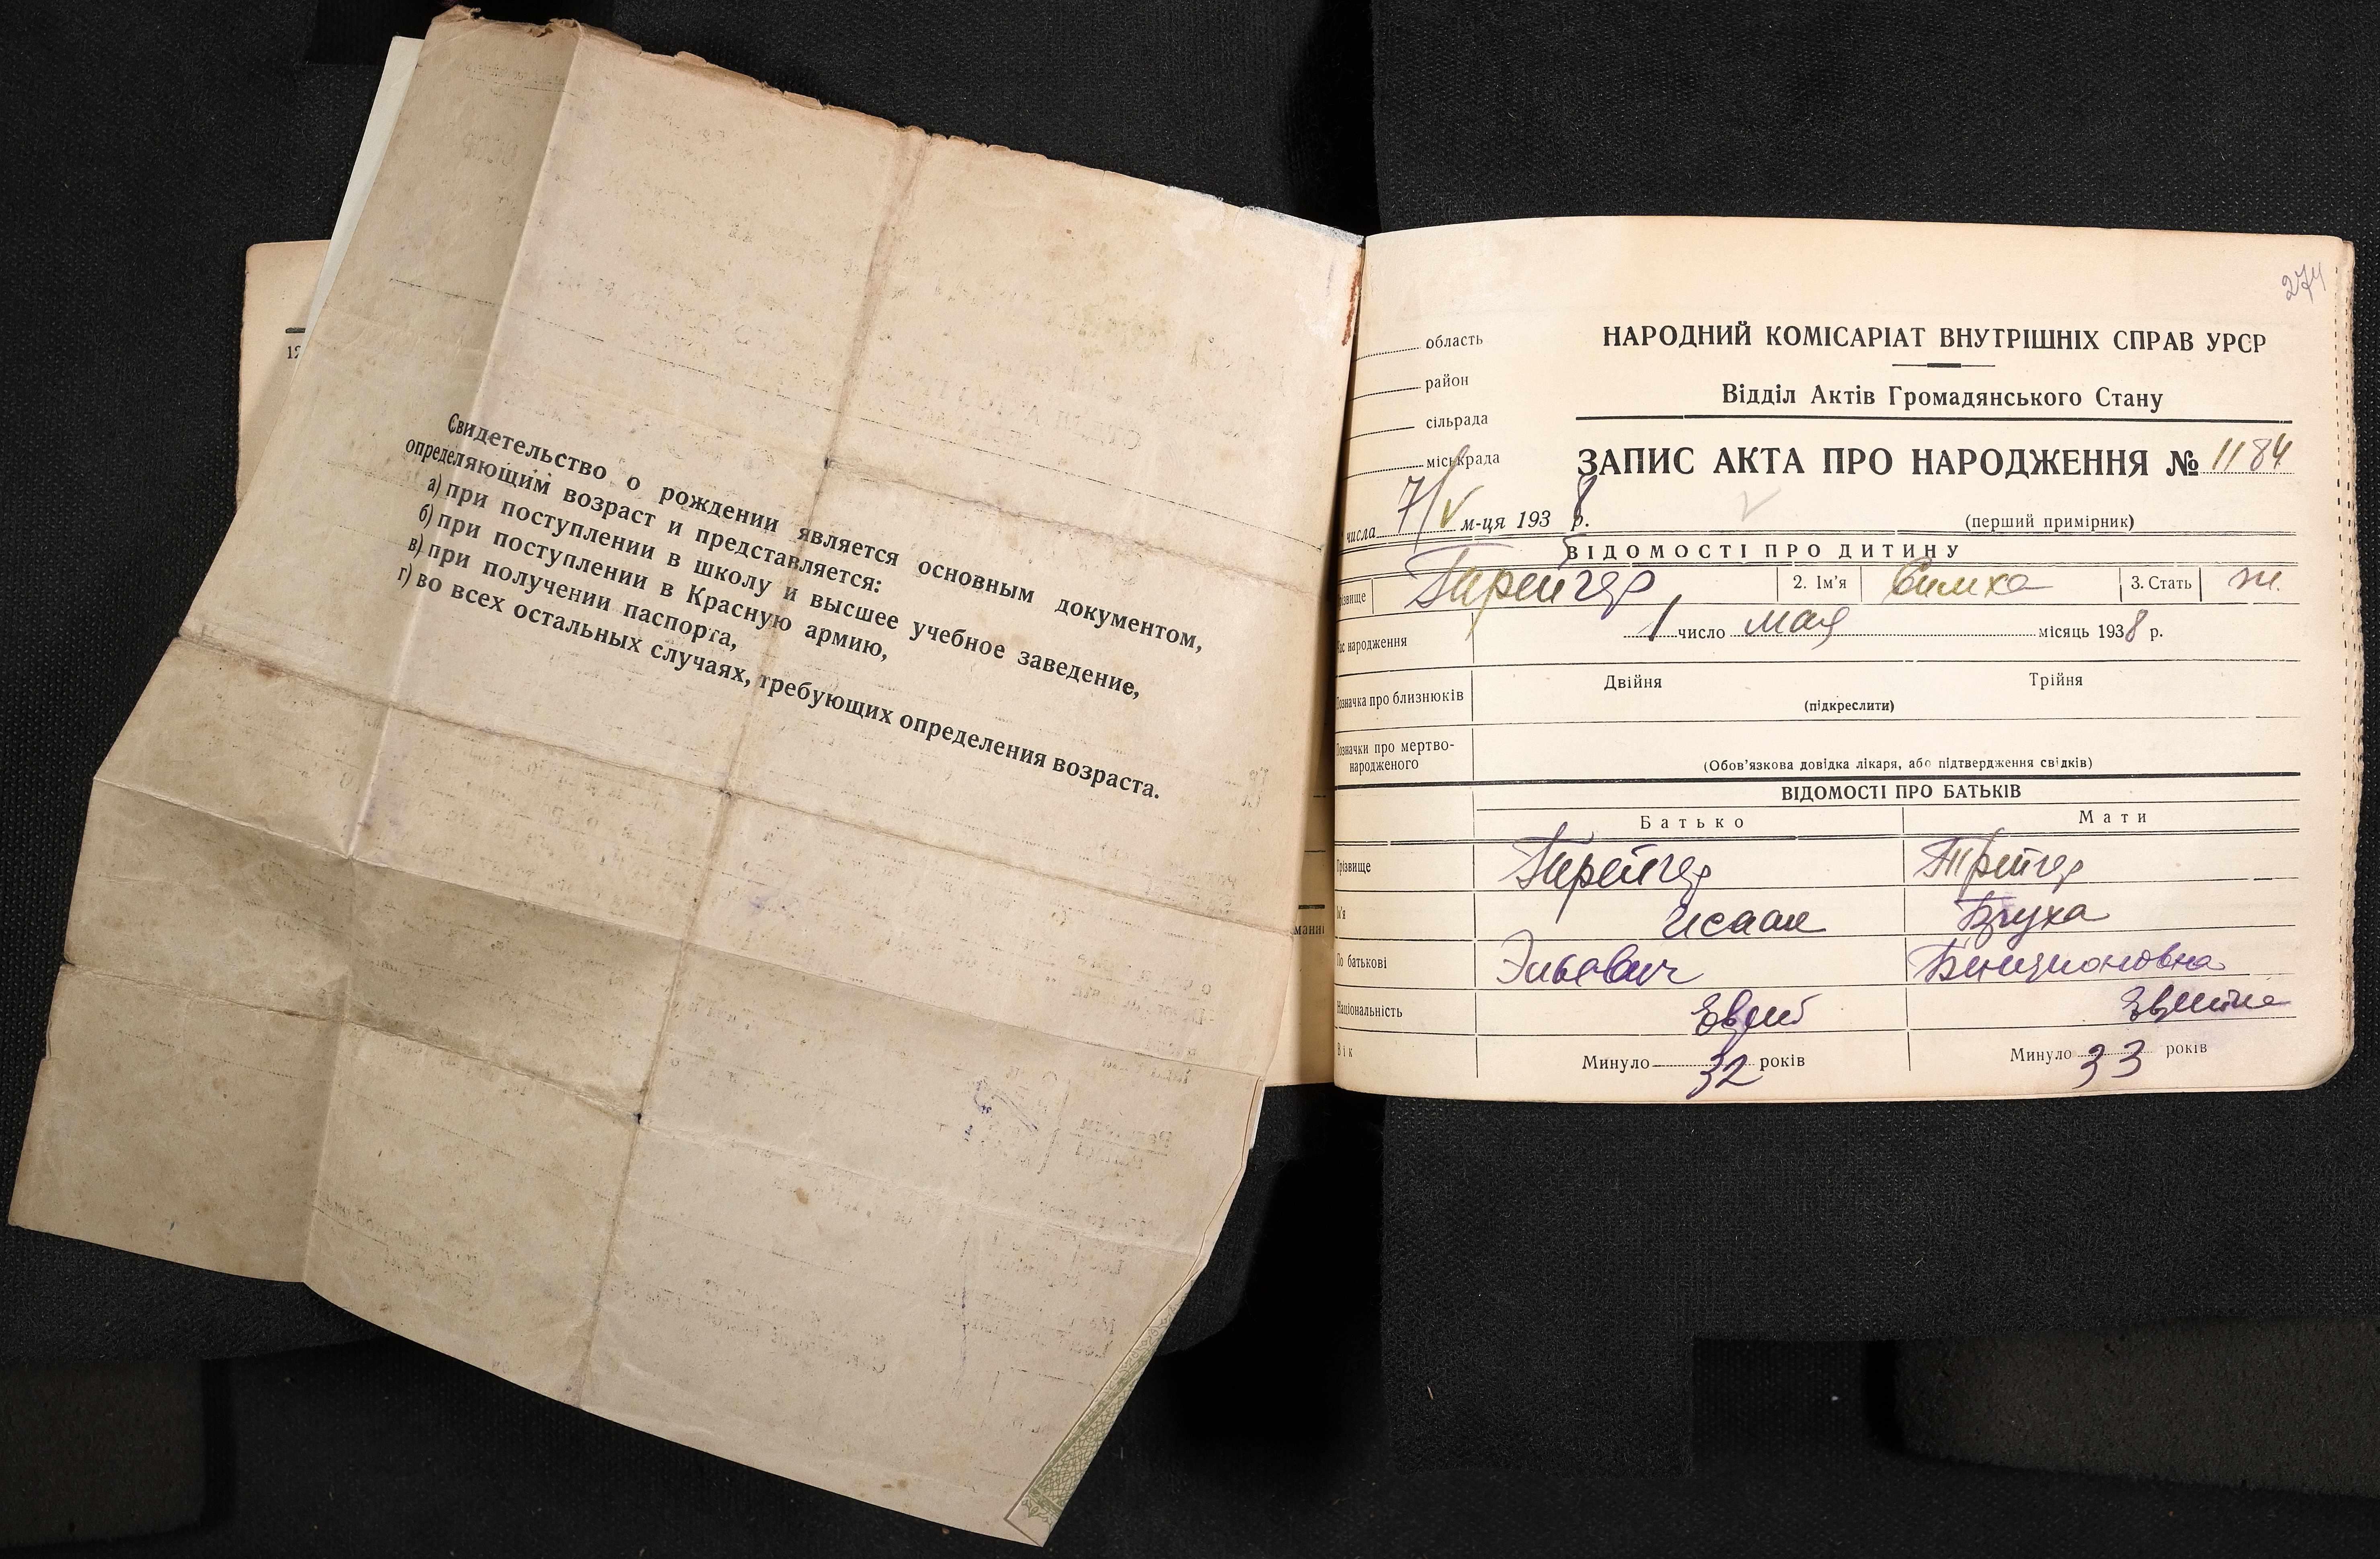 12
Свидетельство о рождении является основным документом,
определяющим возраст и представляется:
а) при поступлении в школу и высшее учебное заведение,
б) при поступлении в Красную армию,
в) при получении паспорта,
г) во всех остальных случаях, требующих определения возраста.
274
область
район
сільрада
міськрада
НАРОДНИЙ КОМІСАРІАТ ВНУТРІШНІХ СПРАВ УРСР
Відділ Актів Громадянського Стану
ЗАПИС АКТА ПРО НАРОДЖЕННЯ № 1184
числа 7/V м-ця 1938 р.
(перший примірник)
ВІДОМОСТІ ПРО ДИТИНУ
2. Ім'я Симха 3. Стать ж.
народження 1 число мая місяць 1938 р.
Позначка про близнюків Двійня Трійня
(підкреслити)
Позначки про мертво-
народженого
(Обов'язкова довідка лікаря, або підтвердження свідків)
ВІДОМОСТІ ПРО БАТЬКІВ
Батько Мати
Прізвище
Ім'я Исаак Бруха
По батькові Бенционовна
Національність Еврей Еврейка
Вік Минуло 32 років Минуло 33 років